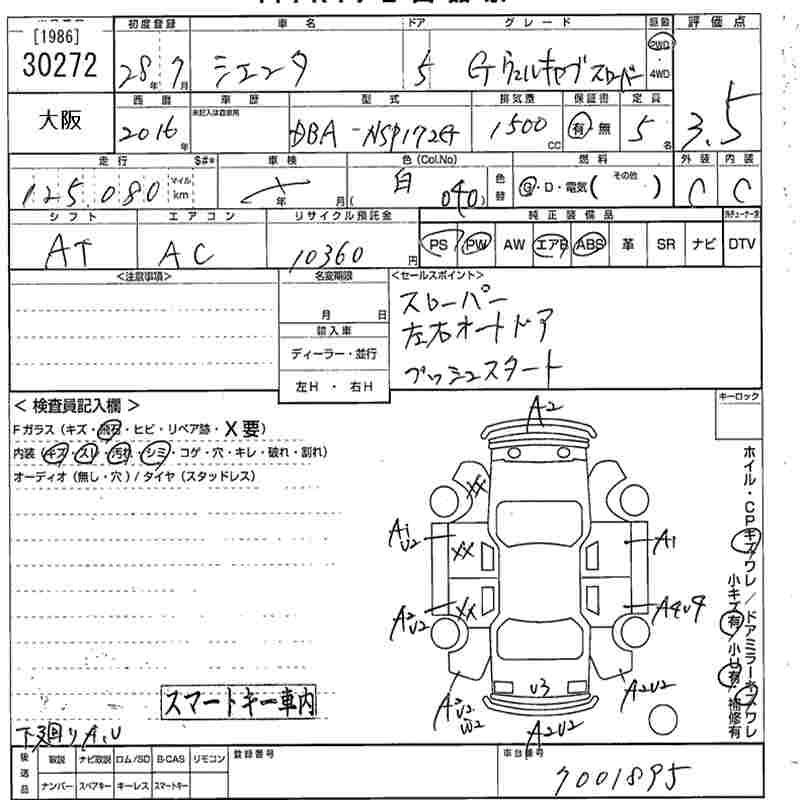 [1986]
30272
大阪
初度登録 車名 ドア グレード 駆動 評価点
28年7月 シエンタ 5 G ウェルキャブスローパー 2WD・4WD 3.5
西暦 車歴 型式 排気量 保証書 定員
2016年 未記入は自家用 DBA-NSP172G 1500CC 有・無 5名
走行 $#* 車検 色(Col.No) 色替 燃料 外装 内装
125,080 マイル km 年 月( 白 040) G・D・電気( その他 ) C C
シフト エアコン リサイクル預託金 純正装備品
AT AC 10360円 PS PW AW エアB ABS 革 SR ナビ DTV
<注意事項> 名変期限 <セールスポイント>
月 日 スローパー
輸入車 左右オートドア
ディーラー・並行 プッシュスタート
左H・右H
<検査員記入欄> キーロック
Fガラス(キズ・飛石・ヒビ・リペア跡・X要)
内装(キズ・スレ・汚れ・シミ・コゲ・穴・キレ・破れ・割れ)
オーディオ(無し・穴)/タイヤ(スタッドレス)
A2
XX
A1 U2 XX A1
A2 U2 XX A4U4
U3
A2 U2 W2 A2U2
A2U2
ホイル・CPキズワレ/ドアミラーキズワレ
小キズ有・小U有・補修有
スマートキー車内
下廻りA,U
後送品 取説 ナビ取説 ロム/SD B-CAS リモコン 登録番号 車台番号
ナンバー スペアキー キーレス スマートキー 7001895